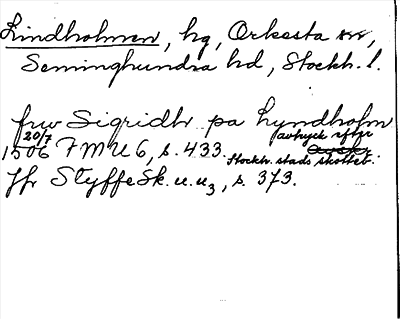 Lindholmen, hg, Orkesta sn,
Seminghundra hd, Stockh. l.
fru Sigridhr pa Lyndholm
20/7 avtryck efter
1506 FMU 6, s. 433. Stockh. stads skotteb.
Jfr Styffe Sk. u. u3, s. 373.